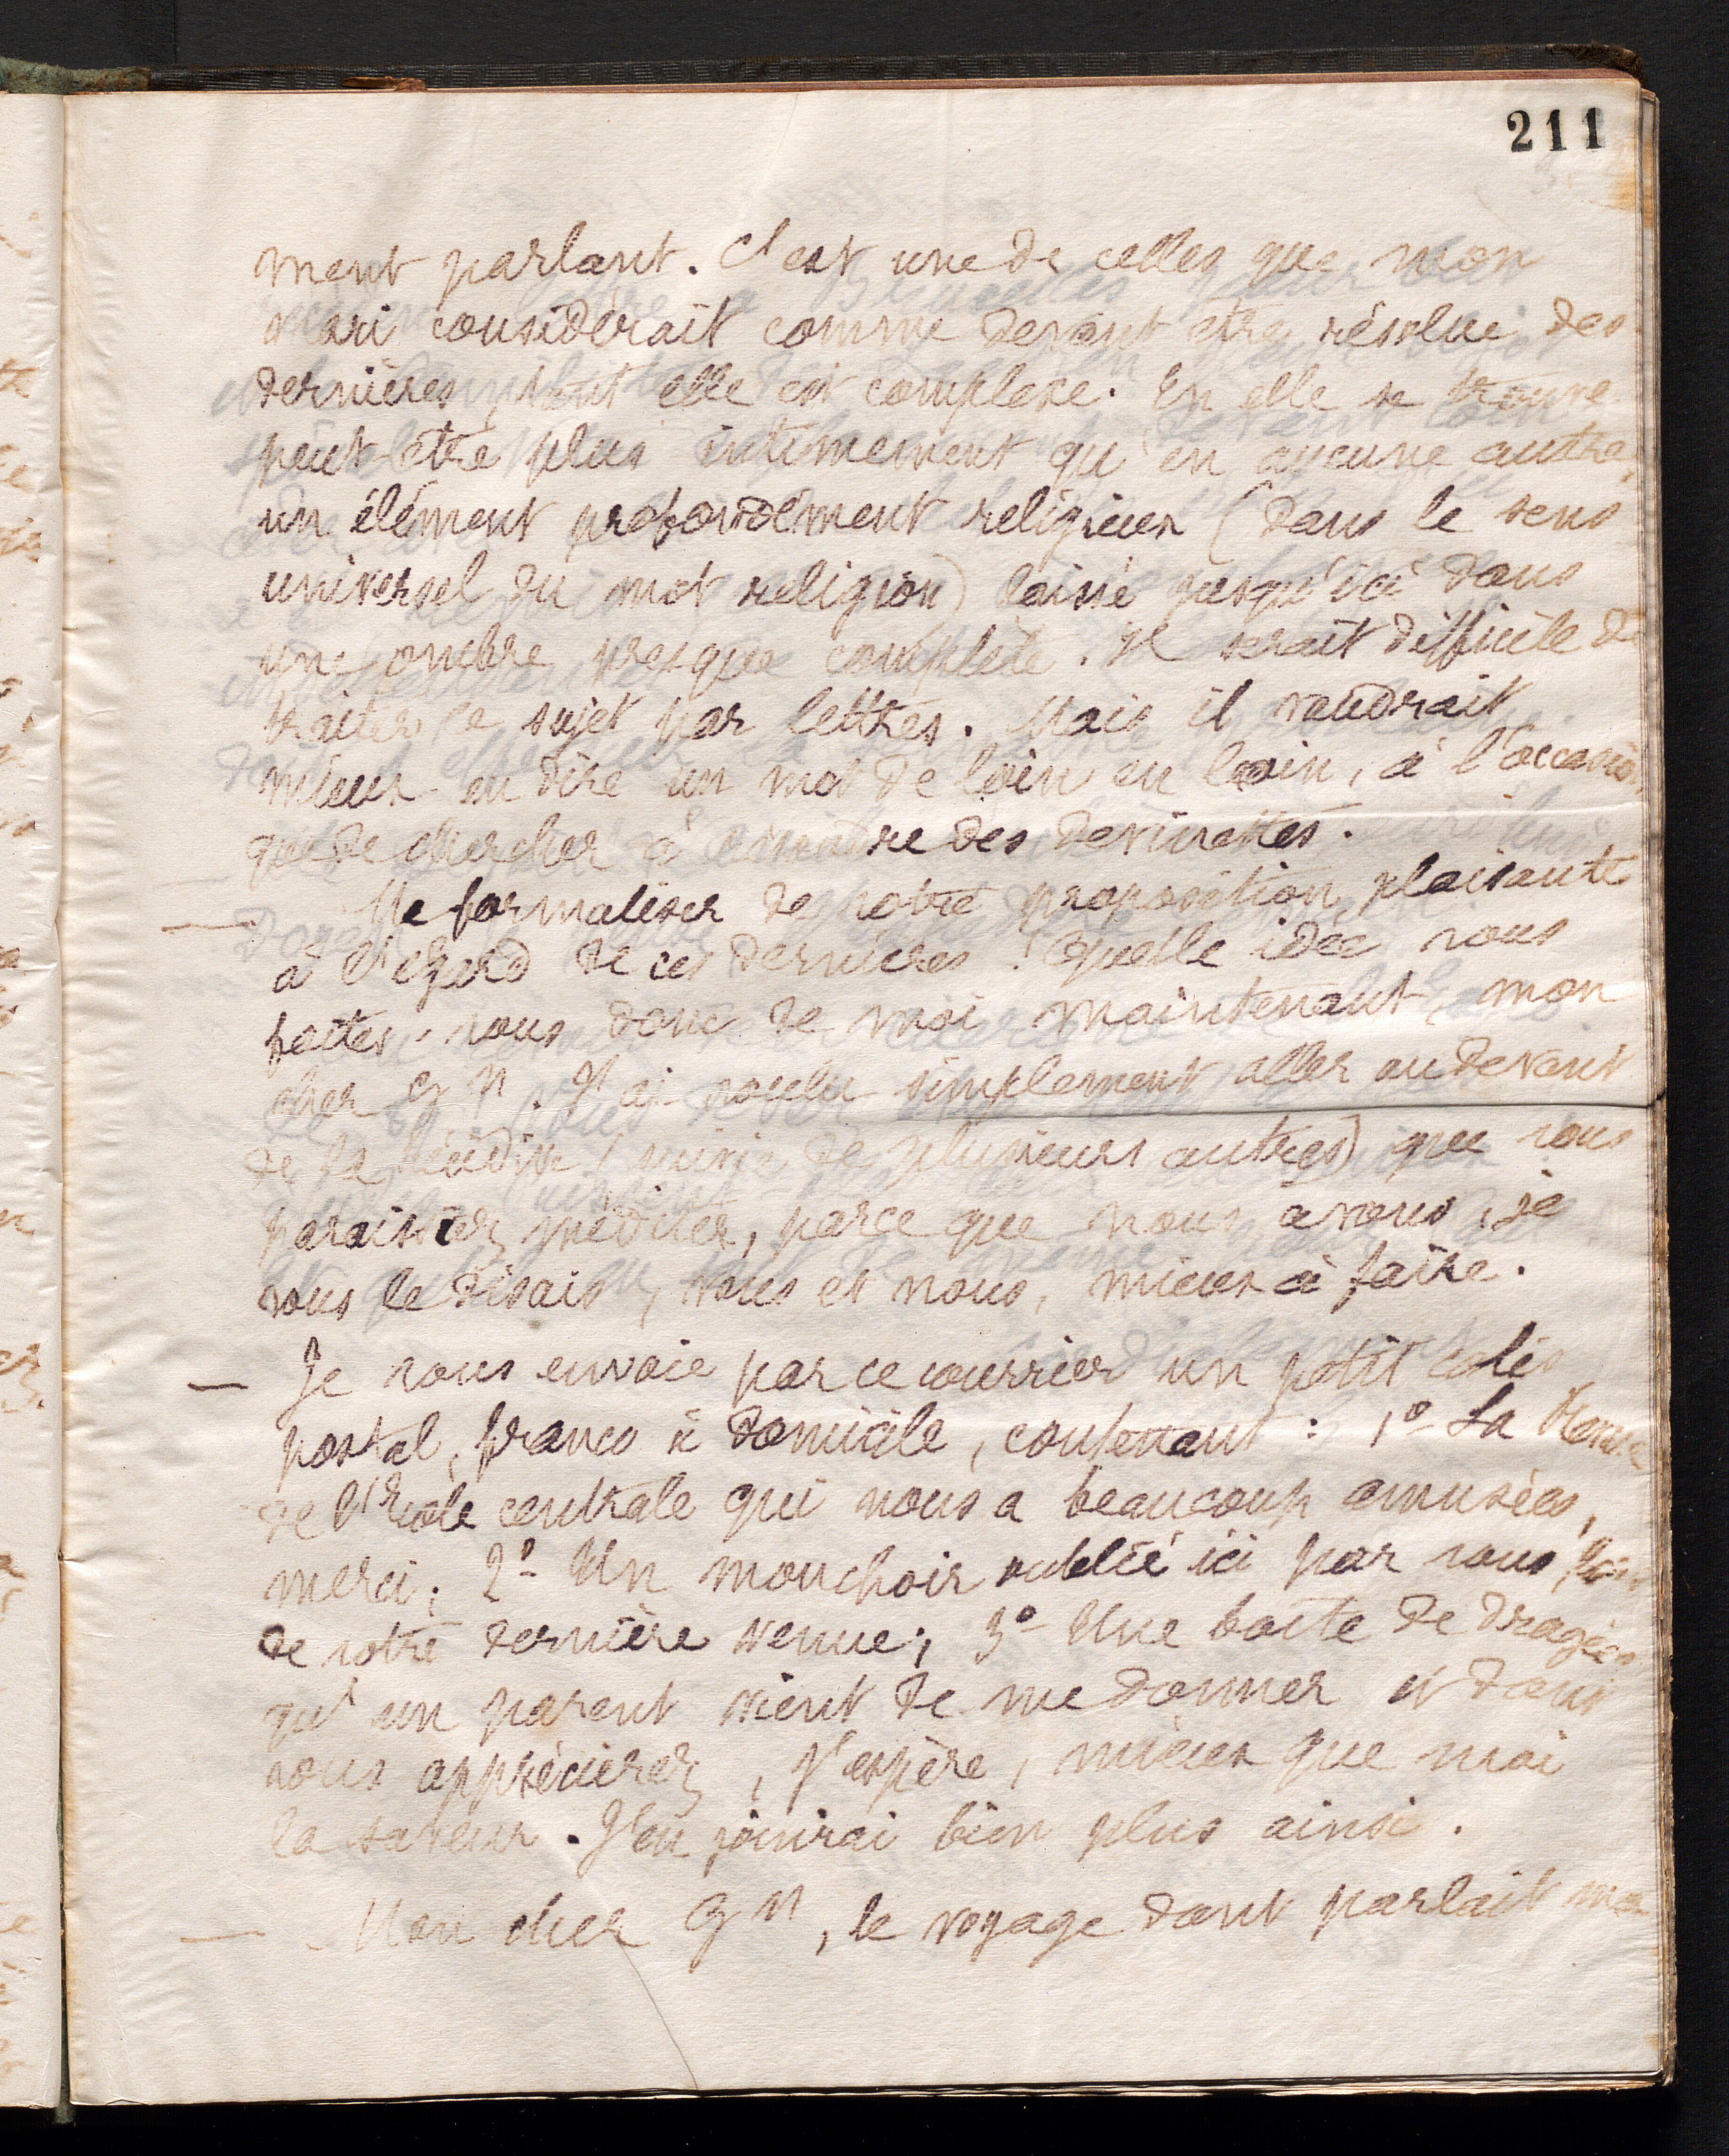 211
ment parlant. C'est une de celles que mon
mari considérait comme devant être résolue des
dernières, tant elle est complexe. En elle se trouve
peut-être plus intimement qu'en aucune autre,
un élément profondément religieux (dans le sens
universel du mot religion) laissé jusqu'ici dans
une ombre presque complète. Il serait difficile de
traiter ce sujet par lettres. Mais il vaudrait
mieux en dire un mot de loin en loin, à l'occasion,
que de chercher à résoudre des devinettes.
— Me formaliser de votre proposition plaisante
à l'égard de ces dernières! Quelle idée vous
faites-vous donc de moi maintenant, mon
cher Gn. J'ai voulu simplement aller au devant
de la (suivie de plusieurs autres) que vous
paraissiez méditer, parce que nous avons, je
vous le disais, vous et nous, mieux à faire.
— Je vous envoie par ce courrier un petit colis
postal, franco à domicile, contenant: 1o La Revue
de l'Ecole centrale qui nous a beaucoup amusées,
merci; 2o Un mouchoir oublié ici par vous,
de votre dernière venue; 3o Une boîte de dragées
qu'un parent vient de me donner et dont
vous apprécierez, j'espère, mieux que moi
la saveur. J'en jouirai bien plus ainsi.
— Mon cher Gn, le voyage dont parlait mon